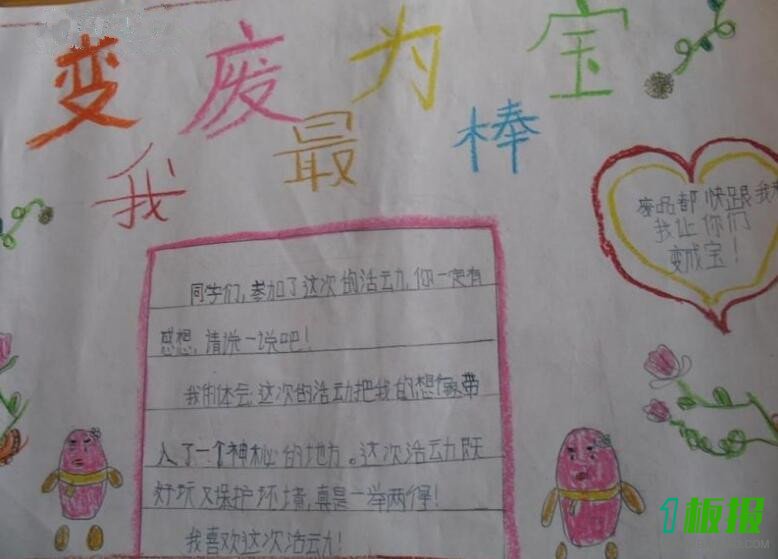 变废为宝
我最棒
废品都快跟我
我让你们
变成宝！
同学们，参加了这次的活动，你一定有
感想，请说一说吧！
我的体会：这次的活动把我的想像带
入了一个神秘的地方。这次活动既
好玩又保护环境，真是一举两得！
我喜欢这次活动！
1板报